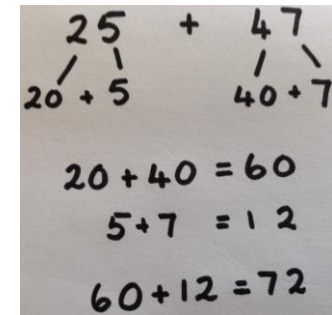 25 + 47
20 + 5 40 + 7
20 + 40 = 60
5 + 7 = 12
60 + 12 = 72